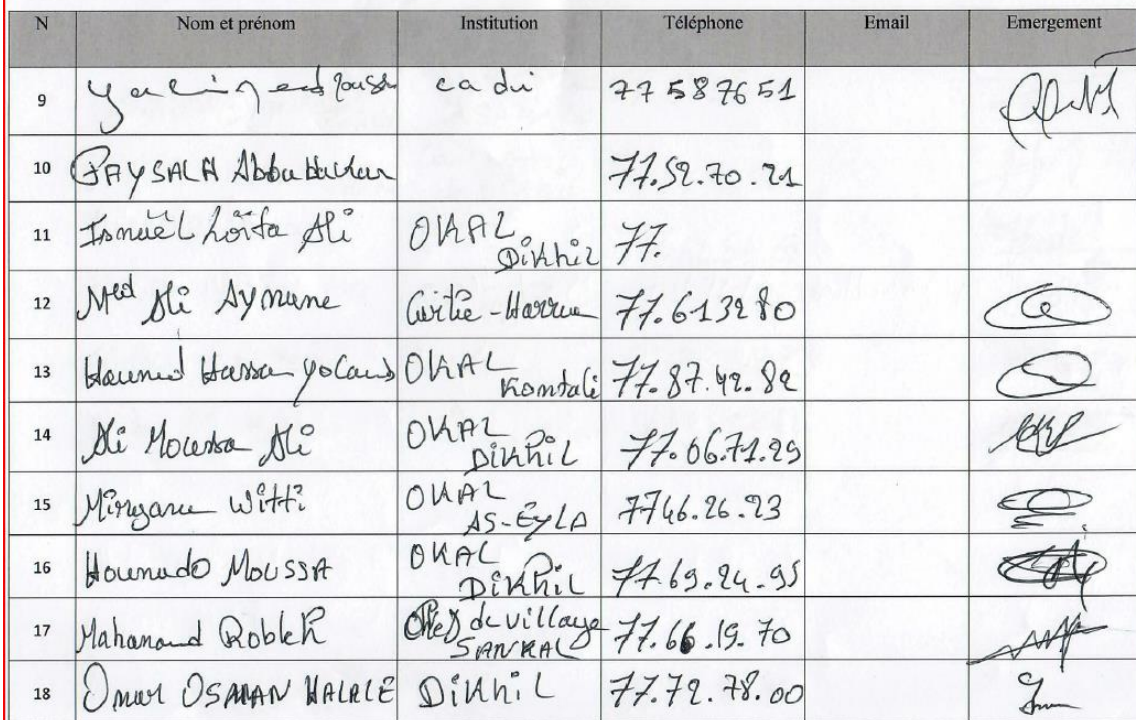 N Nom et prénom Institution Téléphone Email Emergement
9 cadi 77 58 76 51
10 FAYSALA Abbubakar 77.52.70.21
11 Ismaël Loïta Ali OKAL Dikhil 77.
12 Med Ali Aymane 77.613280
13 Houmed Hassan OKAL Kontali 77.87.42.82
14 Ali Moussa Ali OKAL Dikhil 77.06.71.29
15 Witti OKAL AS-EYLA 7746.26.23
16 Houmado MOUSSA OKAL Dikhil 77.69.24.95
17 Mahamoud Robleh Chef de village SANKAL 77.66.19.70
18 Omar OSMAN HALALE Dikhil 77.72.78.00